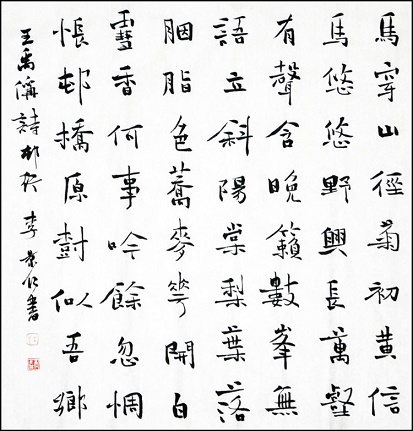 馬穿山徑菊初黃信
馬悠悠野興長萬壑
有聲含晚籟數峯無
語立斜陽棠梨葉落
胭脂色蕎麥花開白
雪香何事吟餘忽惆
悵邨橋原樹似吾鄉
王禹偁詩邨行 李景書